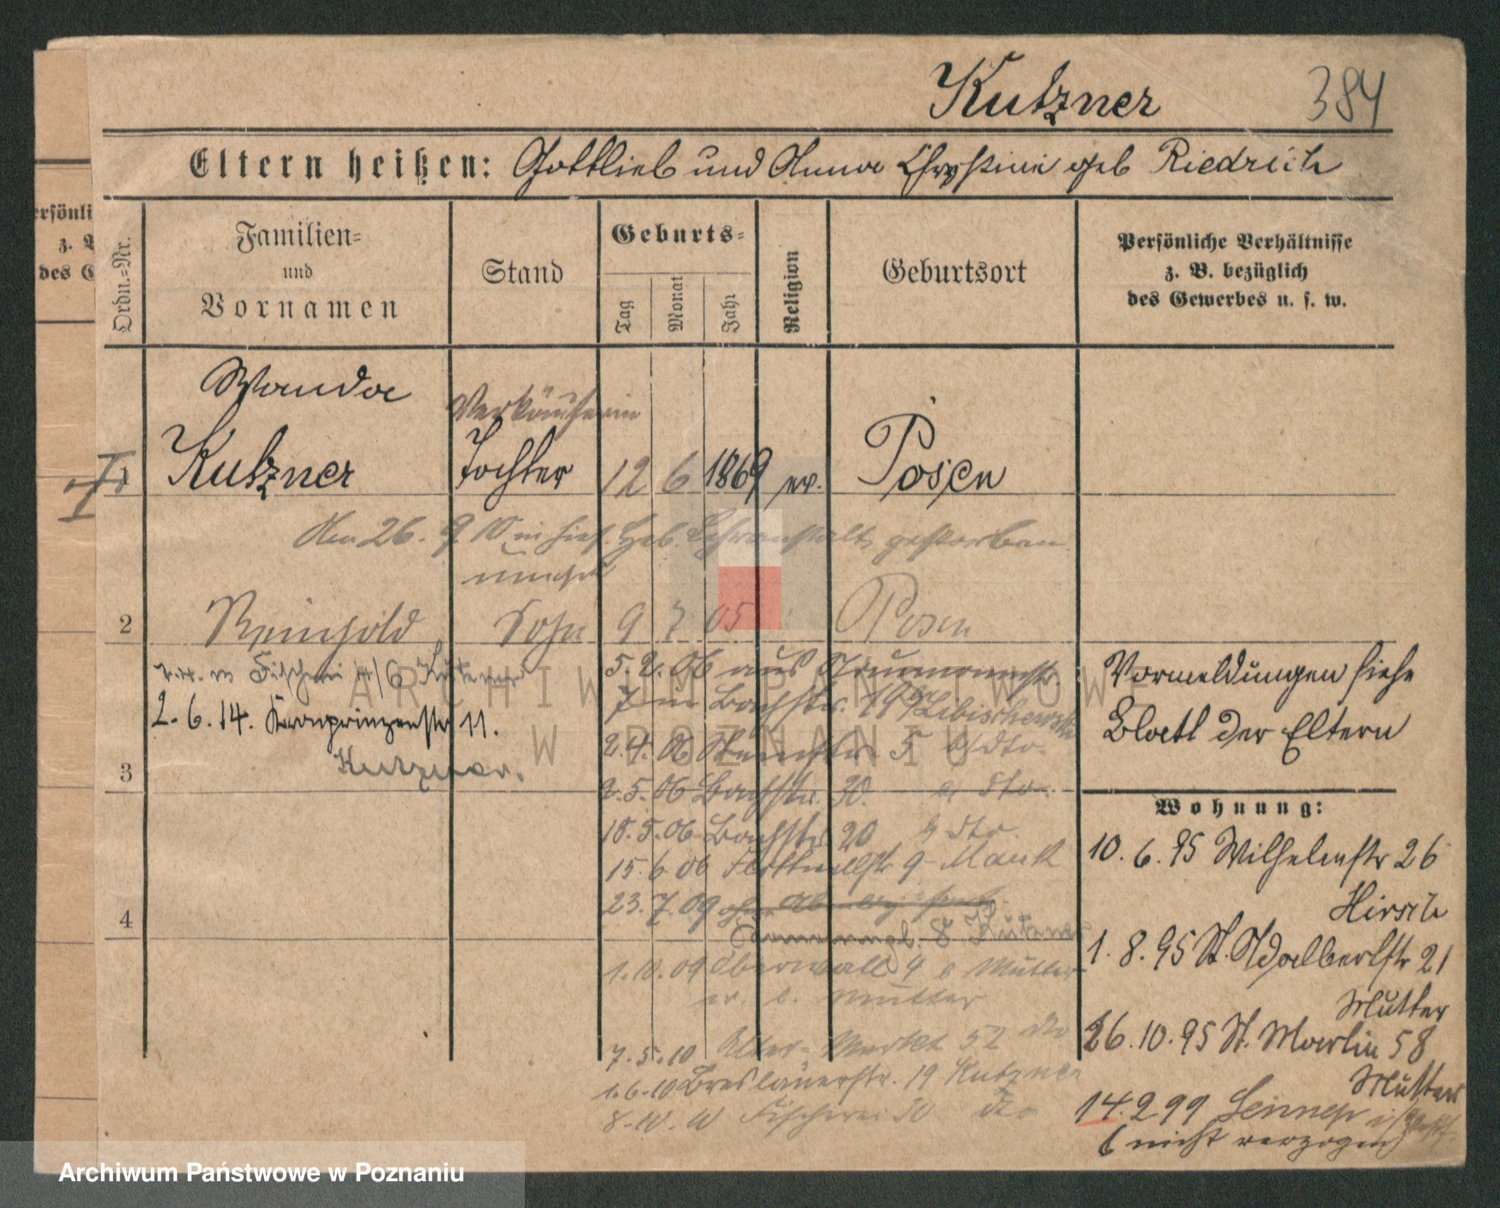 Kutzner 384
Eltern heißen: Gottlieb und Anna Chrystine geb Riedrich
Ordn.-Nr.
Familien- und Vornamen
Stand
Geburts-
Tag
Monat
Jahr
Religion
Geburtsort
Persönliche Verhältnisse
z. B. bezüglich
des Gewerbes u. s. w.
Wanda
Verkäuferin
1 Kutzner Tochter 12 6 1869 ev. Posen
Am 26. 9 10 in hies. Heb. Lehranstalt gestorben
2 Reinhold Sohn 9 7 05 Posen
5. 2. 06 aus
2. 6. 14. Kronprinzenstr 11.
Kutzner.
7 in Bachstr. 19
2. 4. 06 5 dto.
3
2. 5. 06 Bachstr. 30. dto.
18. 5. 06 Bachstr 20 dto.
15. 6. 06 9 Mank
23. 7. 09
4
8 Kutzner
1. 10. 09 Oberwall 4 Mutter
Mutter
7. 5. 10 Alter Markt 52 dto
1. 6. 10 Breslauerstr. 19 Kutzner
8. 10. 10 Fischerei 30 dto
Vormeldungen siehe
Blatt der Eltern
Wohnung:
10. 6. 95 Wilhelmstr 26
Hirsch
1. 8. 95 St. Adalbertstr 21
Mutter
26. 10. 95 St. Martin 58
Mutter
14. 2 99 Lennep
(nicht verzogen)
ersönli
z. B
des G
ARCHIWUM PAŃSTWOWE
W POZNANIU
Archiwum Państwowe w Poznaniu